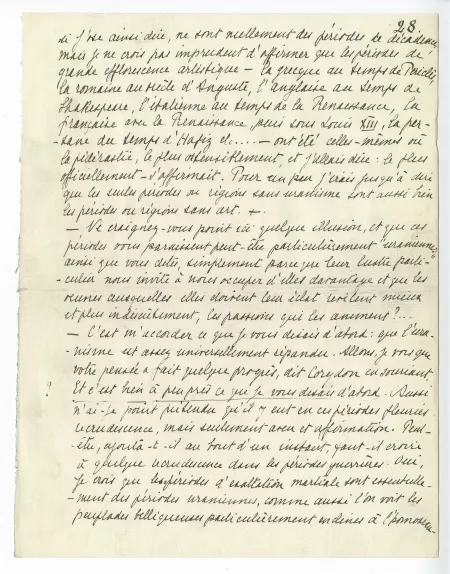 28.
si j'ose ainsi dire, ne sont nullement des périodes de décadence
mais je ne crois pas imprudent d'affirmer que les périodes de
grande efflorescence artistique — la grecque au temps de Périclès,
la romaine au siècle d'Auguste, l'anglaise au temps de
Shakespeare, l'italienne au temps de la Renaissance, la
française avec la Renaissance, puis sous Louis XIII, la per-
sane du temps d'Hafiz etc..... — ont été celles-mêmes où
la pédérastie, le plus ostensiblement et j'allais dire : le plus
officiellement — s'affirmait. Pour un peu j'irais jusqu'à dire
que les seules périodes ou régions sans uranisme sont aussi bien
les périodes ou régions sans art. +
— Ne craignez-vous point ici quelque illusion, et que ces
périodes vous paraissent peut-être particulièrement "uraniennes"
ainsi que vous dites, simplement parce que leur lustre parti-
culier nous invite à nous occuper d'elles davantage et que les
œuvres auxquelles elles doivent leur éclat révèlent mieux
et plus indiscrètement, les passions qui les animent?...
— C'est m'accorder ce que je vous disais d'abord : que l'ura-
-nisme est assez universellement répandu. Allons, je vois que
votre pensée a fait quelque progrès, dit Corydon en souriant
Et c'est bien à peu près ce que je vous disais d'abord. Aussi
?
n'ai-je point prétendu qu'il y eut en ces périodes fleuries
recrudescence, mais seulement aveu et affirmation. Peut-
être, ajouta-t-il au bout d'un instant, faut-il croire
à quelque recrudescence dans les périodes guerrières. Oui,
je crois que les périodes d'exaltation martiale sont essentielle-
-ment des périodes uraniennes, comme aussi l'on voit les
peuplades belliqueuses particulièrement enclines à l'homosexu-